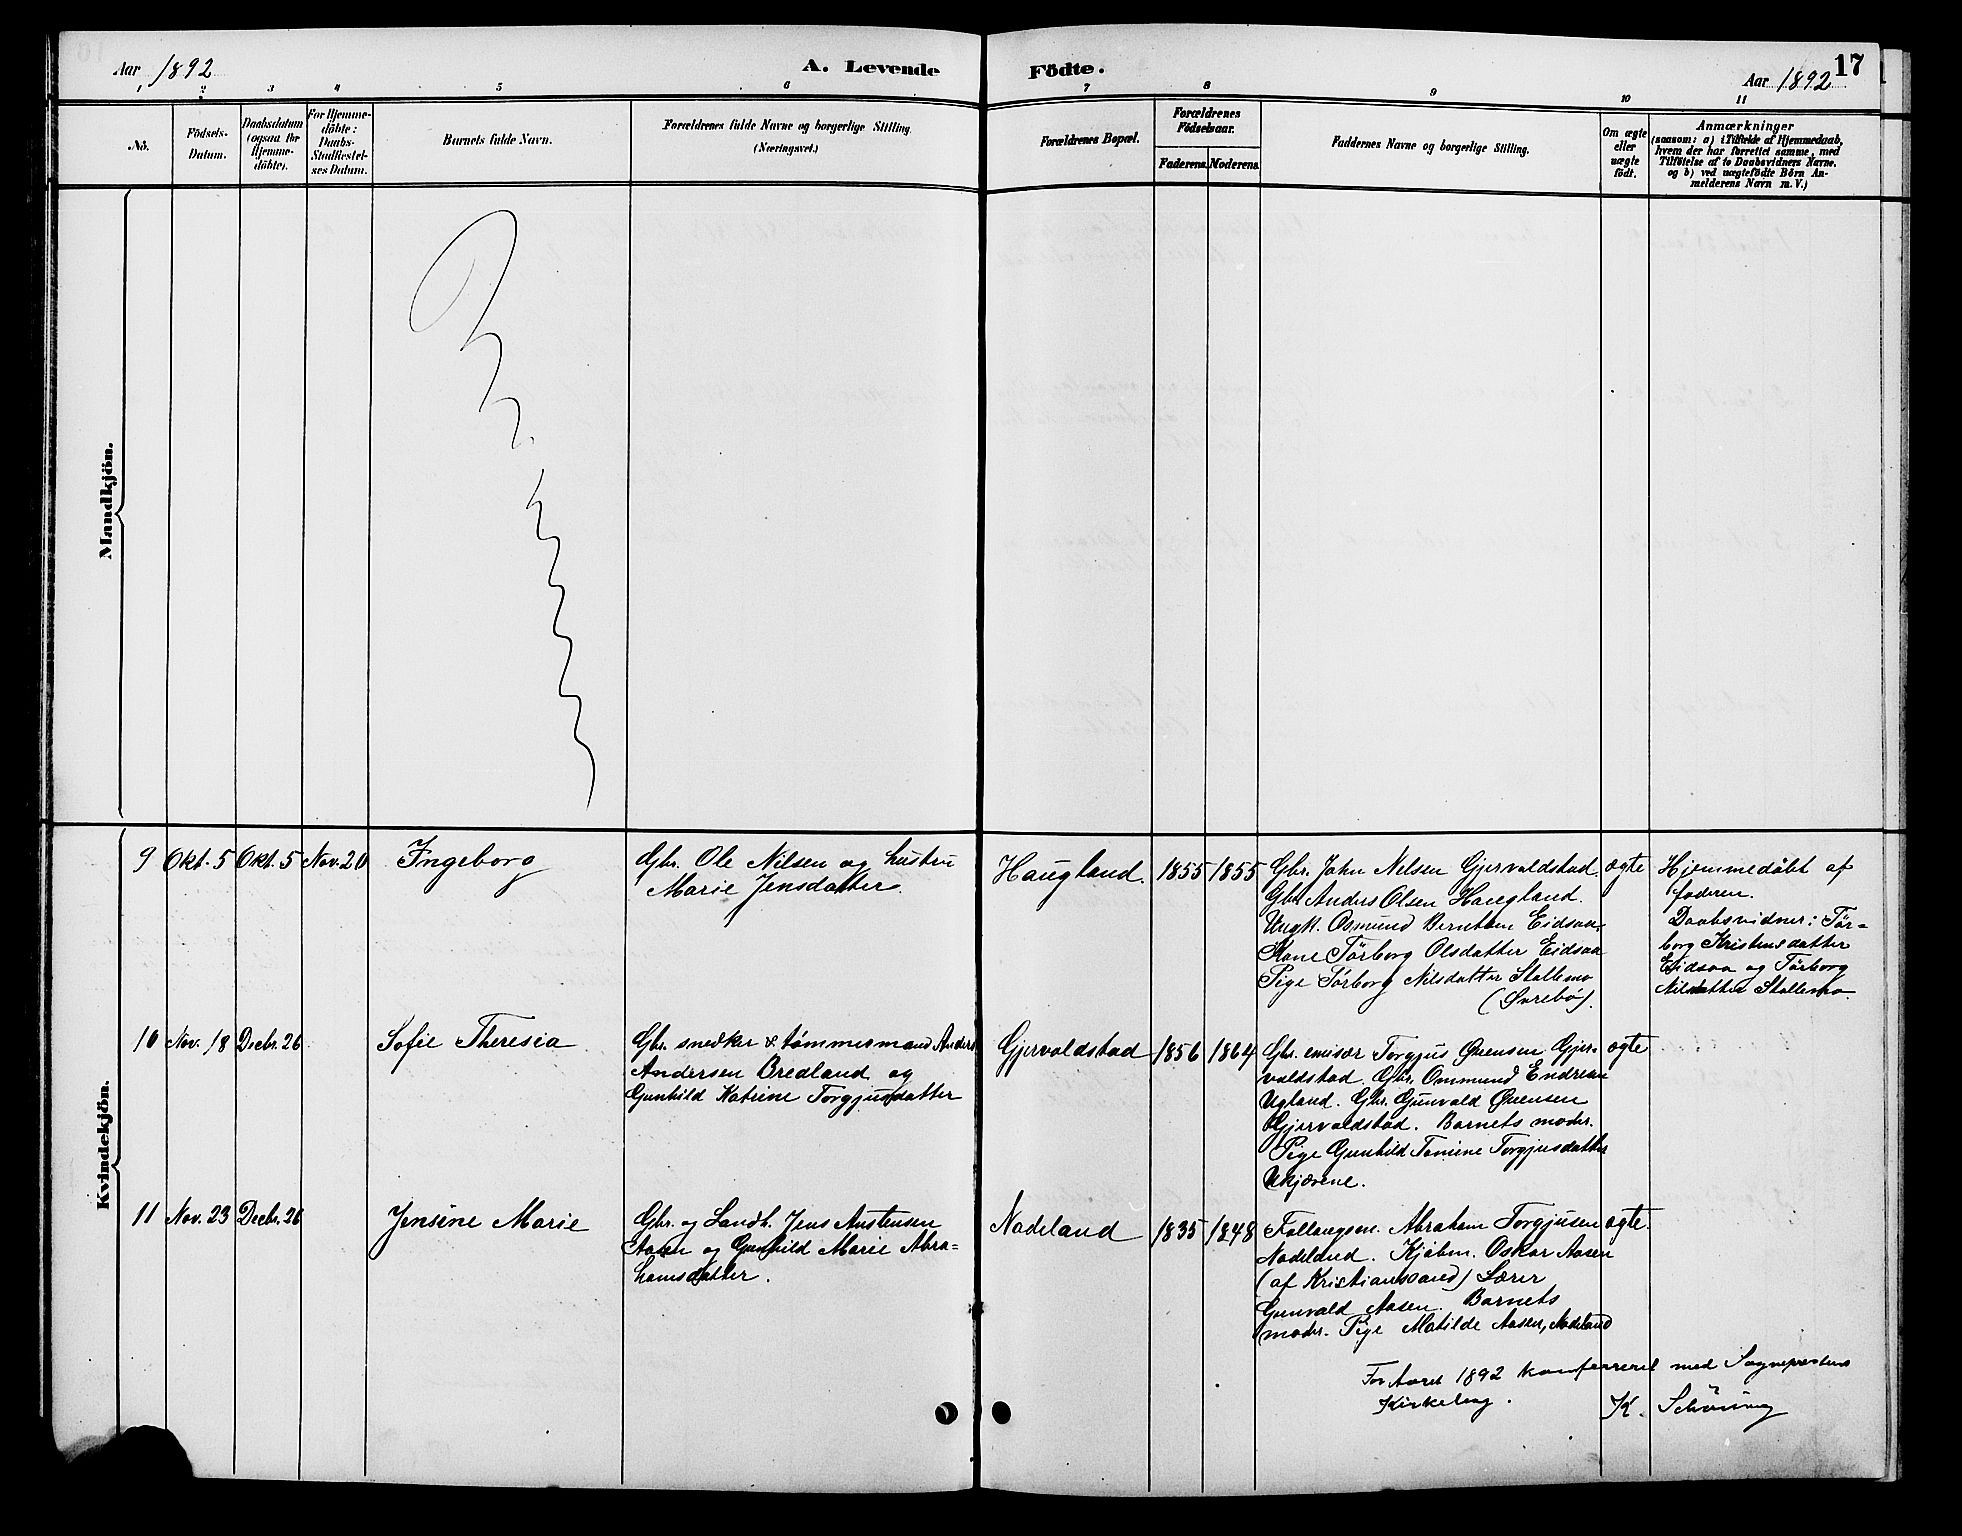 Aar 1892
A. Levende Födte.
Aar 1892
17
1 2 3 4 5 6 7 8 9 10 11
No.
Födsels-
Datum.
Daabsdatum
(ogsaa for
Hjemme-
döbte).
For Hjemme-
döbte:
Daabs-
Stadfæstel-
ses Datum.
Barnets fulde Navn.
Forældrenes fulde Navne og borgerlige Stilling.
(Næringsvei.)
Forældrenes Bopæl.
Forældrenes
Födselsaar.
Faderens. Moderens.
Faddernes Navne og borgerlige Stilling.
Om ægte
eller
uægte
födt.
Anmærkninger
(saasom: a) i Tilfælde af Hjemmedaab,
hvem der har forrettet samme, med
Tilföielse af to Daabsvidners Navne.
og b) ved uægtefödte Börn An-
melderens Navn m. V.)
Mandkjön.
Kvindekjön.
9 Okt. 5 Okt. 5 Nov. 20
Ingeborg
Gbr. Ole Nilsen og hustru
Marie Jensdatter.
Haugland. 1855 1855
Gbr. John Nilsen Gjervoldstad
Gbr. Anders Olsen Haugland.
Ungk. Osmund Berntsen Eidsaa.
Kone Tørborg Olsdatter Eidsaa
Pige Tørborg Nilsdatter Stallemo
(Øvrebø).
ægte
Hjemmedøbt af
faderen.
Daabsvidner: Tør-
borg Kristensdatter
Eidsaa og Tørborg
Nilsdatter Stallemo.
10 Nov. 18 Decbr. 26
Sofie Theresia
Gbr. snedker & tømmermand Anders
Andersen Bredland og
Gunhild Katrine Torgjusdatter
Gjervoldstad 1856 1864
Gbr. emisær Torgjus Øvensen Gjer-
voldstad. Gbr. Ommund Endresen
Ugland. Gbr. Gunvald Øvensen
Gjervoldstad. Barnets moder.
Pige Gunhild Tomine Torgjusdatter
Ukjærene.
ægte
11 Nov. 23 Decbr. 26
Jensine Marie
Gbr. og Landh. Jens Austensen
Aasen og Gunhild Marie Abra-
hamsdatter.
Nodeland 1835 1848
Follaugsm. Abraham Torgjusen
Nodeland. Kjøbm. Oskar Aasen
(af Kristianssand) Lærer
Gunvald Aasen. Barnets
moder. Pige Matilde Aasen, Nodeland
ægte.
For Aaret 1892 konfereret med Sogneprestens
Kirkebog.
K. Schöning